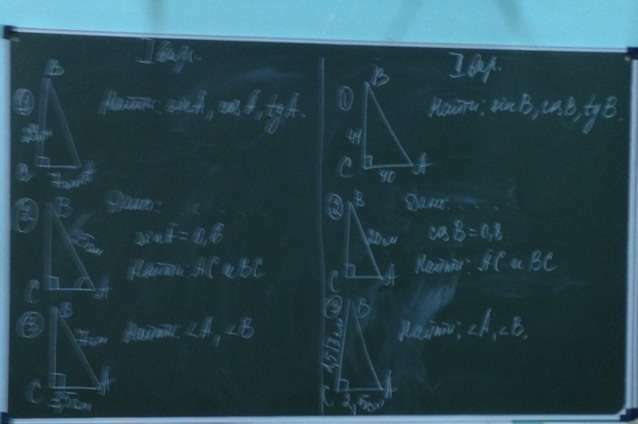 I вар.
B
①
Найти: sin A, cos A, tg A.
A
②
B
Дано:
sin A = 0,6
Найти: AC и BC
C
A
③
B
7 см
Найти: ∠A, ∠B
C
A
II вар.
B
①
Найти: sin B, cos B, tg B.
C
A
40
②
B
Дано:
20 см
cos B = 0,8
Найти: AC и BC
C
A
③
B
Найти: ∠A, ∠B.
C
A
2,5 см